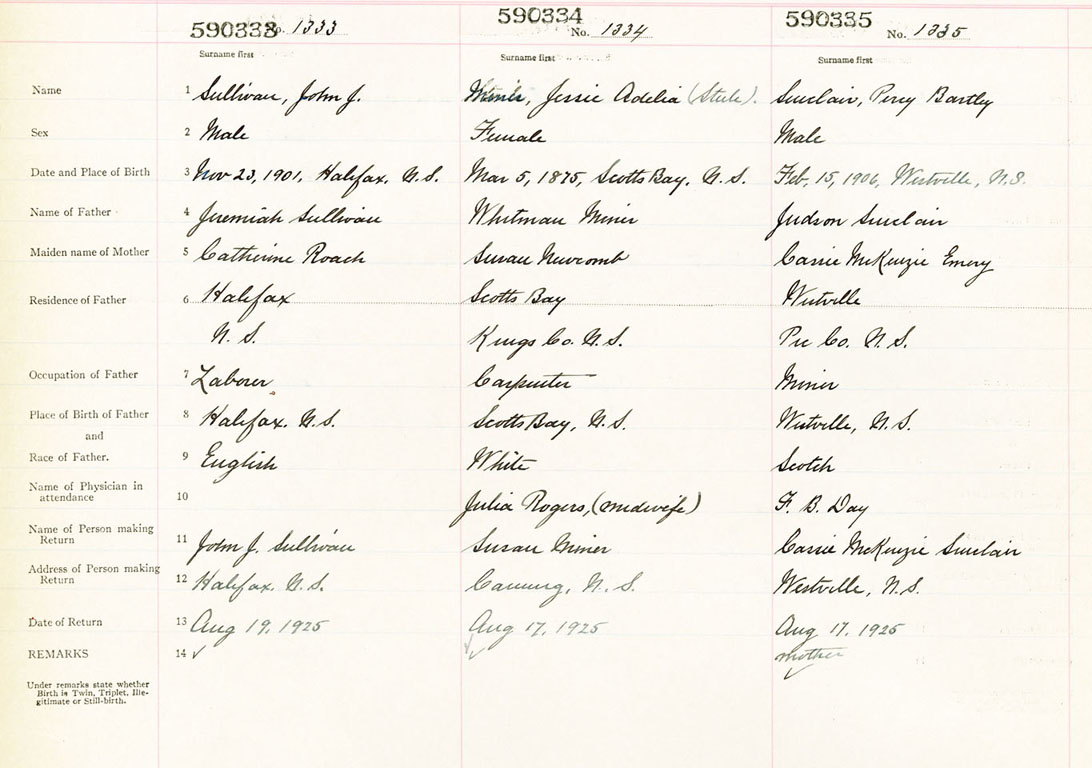 590333 No. 1333 590334 No. 1334 590335 No. 1335
Surname first Surname first Surname first
Name 1 Sullivan, John J. Miner, Jessie Adelia (Stule). Sinclair, Percy Bartley
Sex 2 Male Female Male
Date and Place of Birth 3 Nov 23, 1901, Halifax, N.S. Mar 5, 1875, Scotts Bay, N.S. Feb, 15, 1906, Westville, N.S.
Name of Father 4 Jeremiah Sullivan Whitman Miner Judson Sinclair
Maiden name of Mother 5 Catherine Roach Susan Newcomb Cassie McKenzie Emery
Residence of Father 6 Halifax Scotts Bay Westville
N.S. Kings Co. N.S. Pic Co. N.S.
Occupation of Father 7 Laborer Carpenter Miner
Place of Birth of Father 8 Halifax. N.S. Scotts Bay, N.S. Westville, N.S.
and
Race of Father. 9 English White Scotch
Name of Physician in
attendance 10 Julia Rogers, (midwife) F. B. Day
Name of Person making
Return 11 John J. Sullivan Susan Miner Cassie McKenzie Sinclair
Address of Person making
Return 12 Halifax. N.S. Canning, N.S. Westville, N.S.
Date of Return 13 Aug 19, 1925 Aug 17, 1925 Aug 17, 1925
REMARKS 14 ✓ ✓ mother ✓
Under remarks state whether
Birth is Twin, Triplet, Ille-
gitimate or Still-birth.